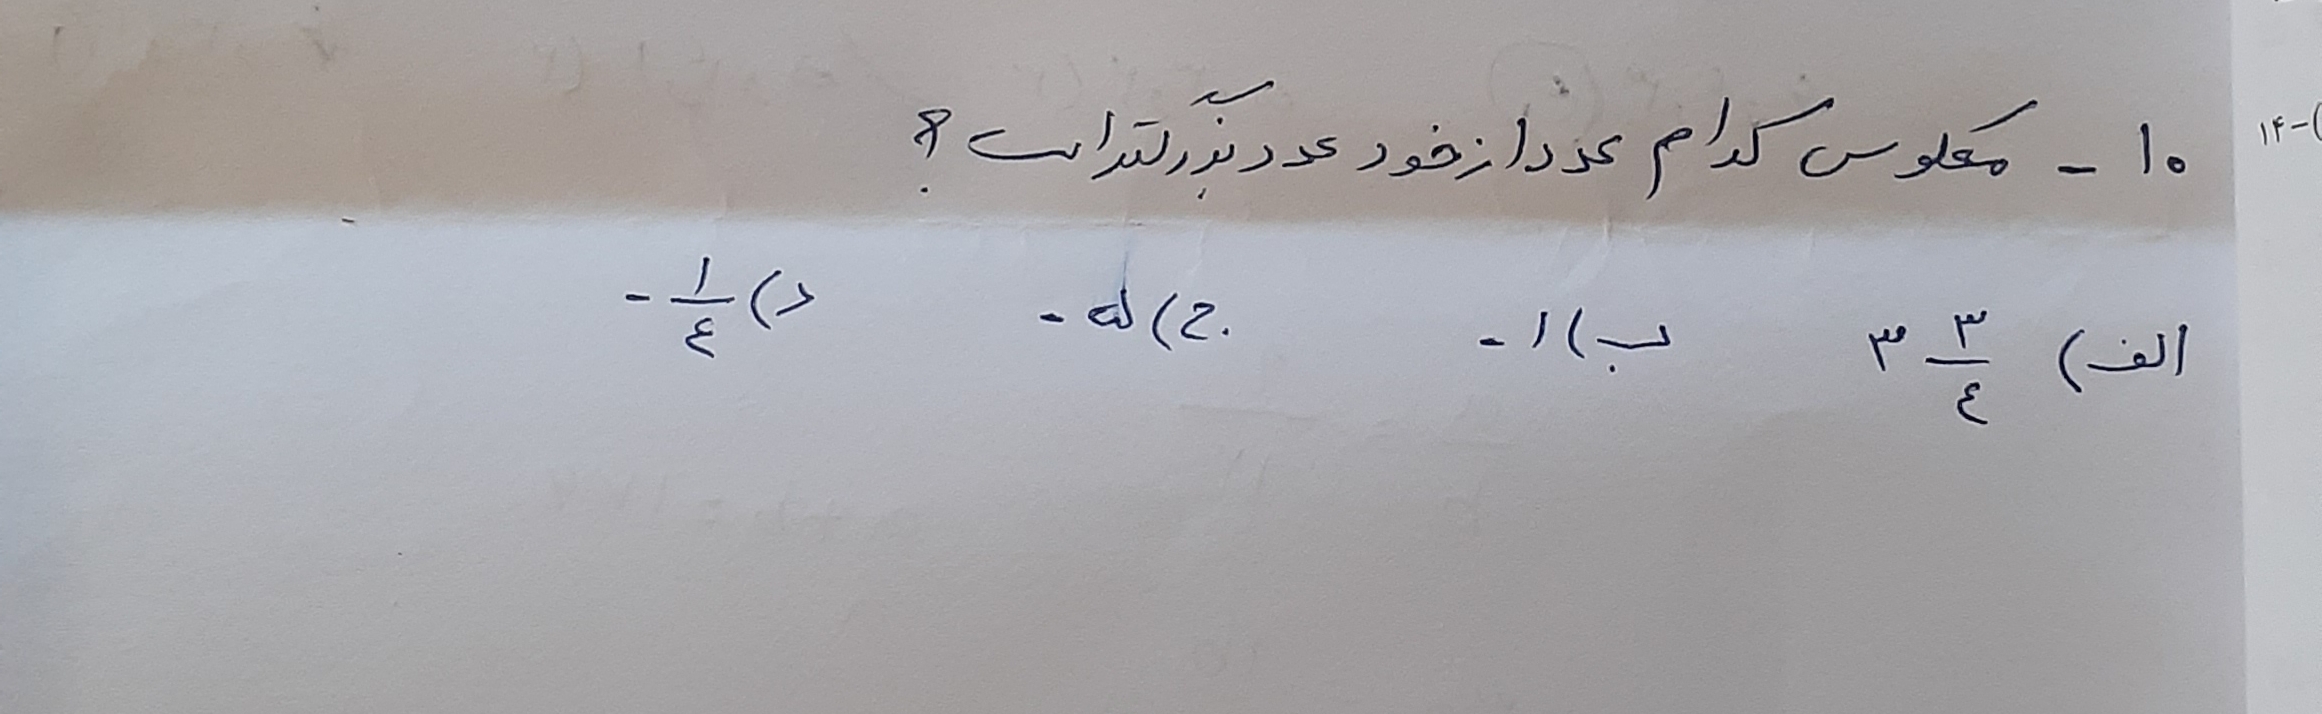 ۱۰ - معکوس کدام عدد از خود عدد بزرگتر است ؟
الف) ۳ ۳/۴ ب) ۱- ج) ۵- د) ۱/۴ -
۱۴-(